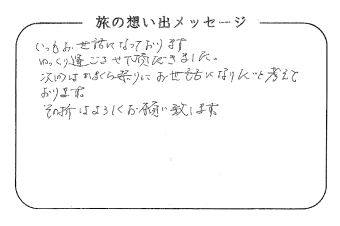 旅の想い出メッセージ
いつもお世話になっております
ゆっくり過ごさせて頂きました。
次回はかまくら祭りにお世話になりたいと考えて
おります
その折はよろしくお願い致します